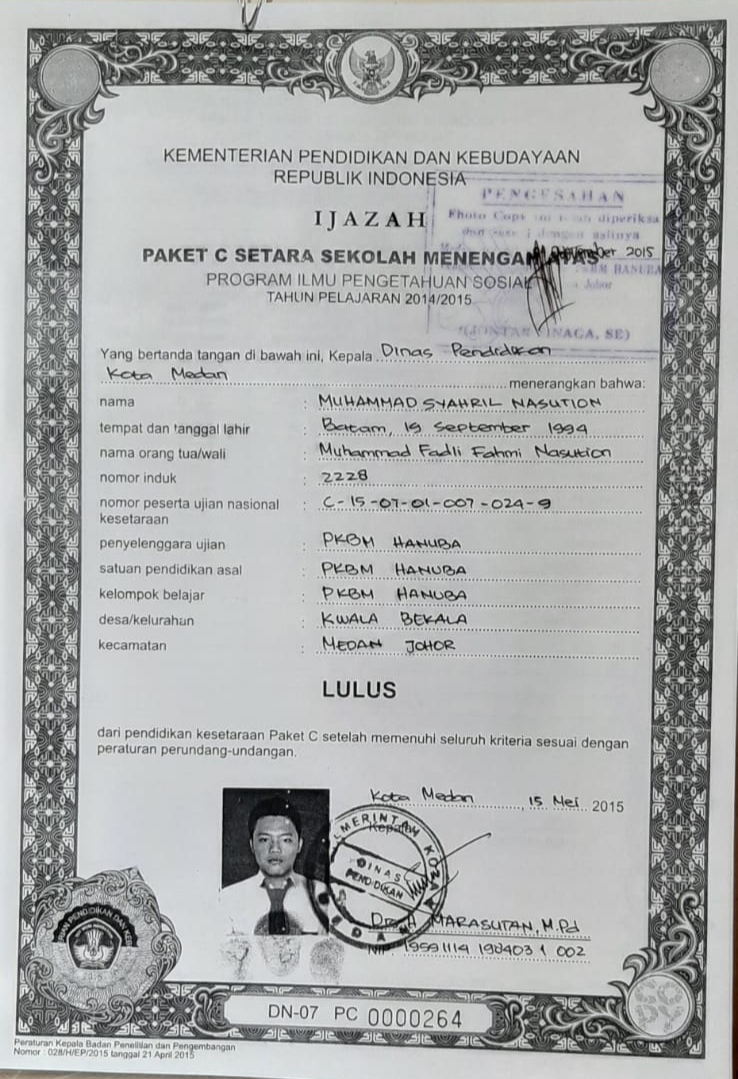 KEMENTERIAN PENDIDIKAN DAN KEBUDAYAAN
REPUBLIK INDONESIA
PENGESAHAN
IJAZAH
diperiksa
aslinya
PAKET C SETARA SEKOLAH MENENGAH ATAS
2015
PROGRAM ILMU PENGETAHUAN SOSIAL
Johor
TAHUN PELAJARAN 2014/2015
SE)
Yang bertanda tangan di bawah ini, Kepala Dinas Pendidikan
Kota Medan menerangkan bahwa:
nama : MUHAMMAD SYAHRIL NASUTION
tempat dan tanggal lahir : Batam, 19 September 1994
nama orang tua/wali : Muhammad Fadli Fahmi Nasution
nomor induk : 2228
nomor peserta ujian nasional : C-15-07-01-007-024-9
kesetaraan
penyelenggara ujian : PKBM HANUBA
satuan pendidikan asal : PKBM HANUBA
kelompok belajar : PKBM HANUBA
desa/kelurahan : KWALA BEKALA
kecamatan : MEDAN JOHOR
LULUS
dari pendidikan kesetaraan Paket C setelah memenuhi seluruh kriteria sesuai dengan
peraturan perundang-undangan.
Kota Medan, 15 Mei 2015
Kepala
DINAS
PENDIDIKAN
MARASUTAN, M.Pd
NIP. 19591114 198403 1 002
DN-07 PC 0000264
Peraturan Kepala Badan Penelitian dan Pengembangan
Nomor : 028/H/EP/2015 tanggal 21 April 2015